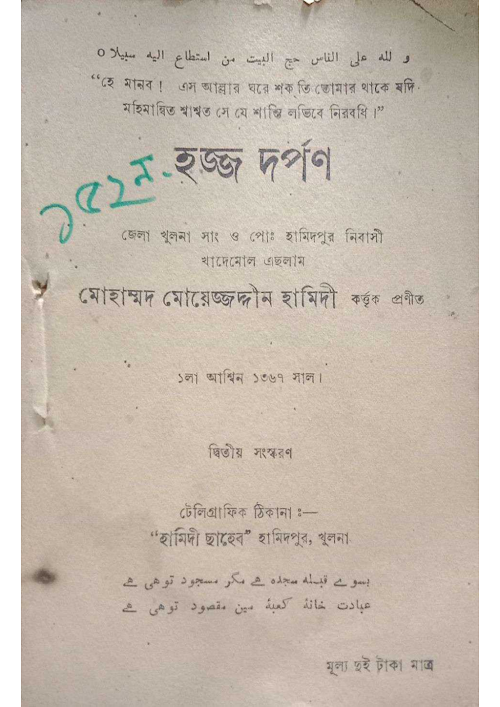 و لله على الناس حج البيت من استطاع اليه سبيلا ٥
“হে মানব ! এস আল্লার ঘরে শকতি তোমার থাকে যদি
মহিমান্বিত শ্বাশ্বত সে যে শান্তি লভিবে নিরবধি।”
হজ্জ দর্পণ
১৫২ন.
জেলা খুলনা সাং ও পোঃ হামিদপুর নিবাসী
খাদেমোল এছলাম
মোহাম্মদ মোয়েজ্জদ্দীন হামিদী কর্ত্তৃক প্রণীত
১লা আশ্বিন ১৩৬৭ সাল।
দ্বিতীয় সংস্করণ
টেলিগ্রাফিক ঠিকানা ঃ—
“হামিদী ছাহেব” হামিদপুর, খুলনা
بسوے قبله سجده هے مگر مسجود توهی هے
عبادت خانهٔ كعبهٔ مین مقصود توهی هے
মূল্য দুই টাকা মাত্র